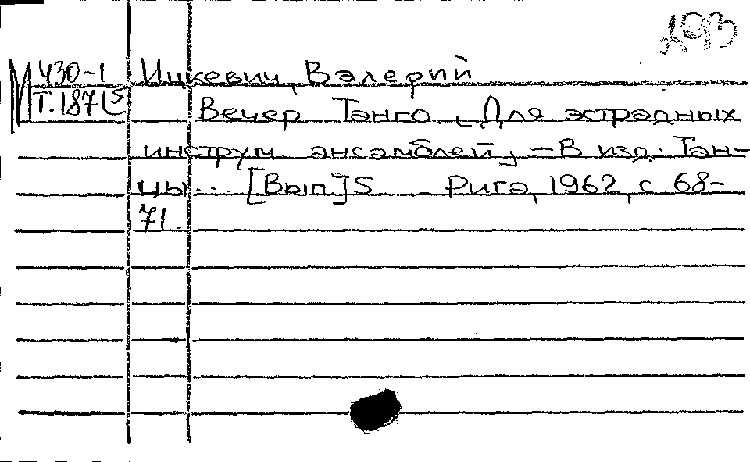 293
М 430-1 Ицкевич, Валерий
Т.1871/5 Вечер. Танго. [Для эстрадных
инструм. ансамблей]. – В изд: Тан-
цы.. [Вып.] 5. Рига, 1962, с. 68-
71.